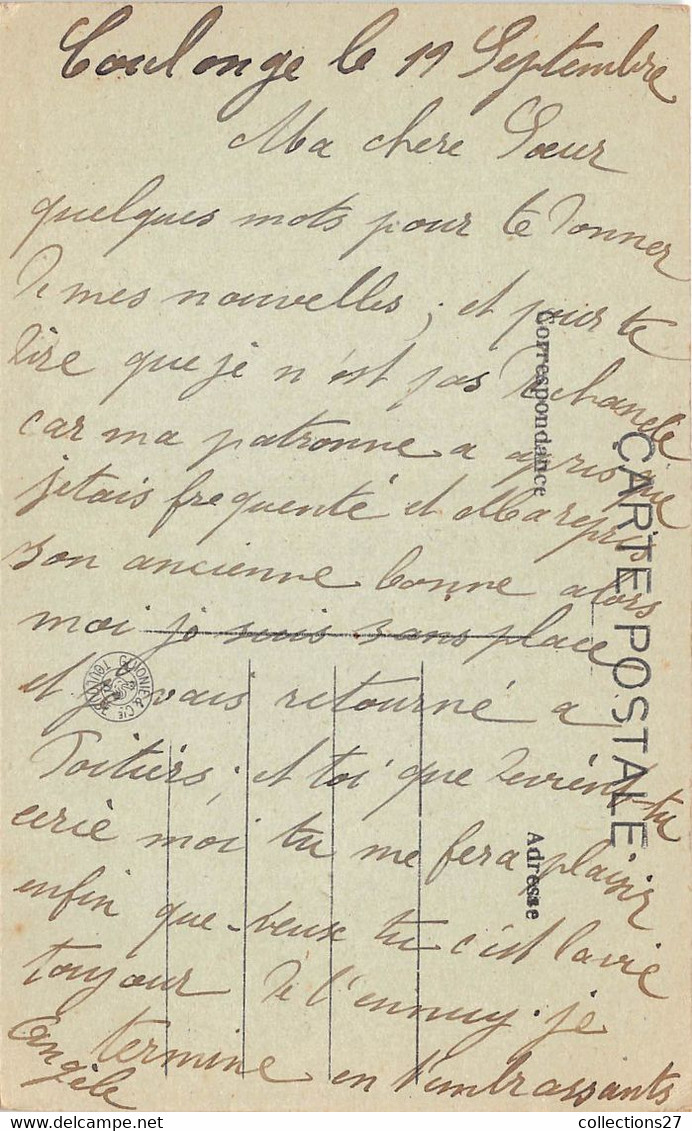 Coulonge le 19 Septembre
Ma chere Sœur
quelques mots pour te donner
de mes nouvelles, et pour te
dire que je n'est pas chance
car ma patronne a apris que
jetais frequenté et Ma repris
son ancienne bonne alors
moi je suis sans place
et je vais retourné a
Poitiers; et toi que devient-tu
ecrie moi tu me fera plaisir
enfin que veux tu c'est la vie
toujour de l'ennuy. je
termine en t'embrassants
Angèle
CARTE POSTALE
Correspondance
Adresse
collections27